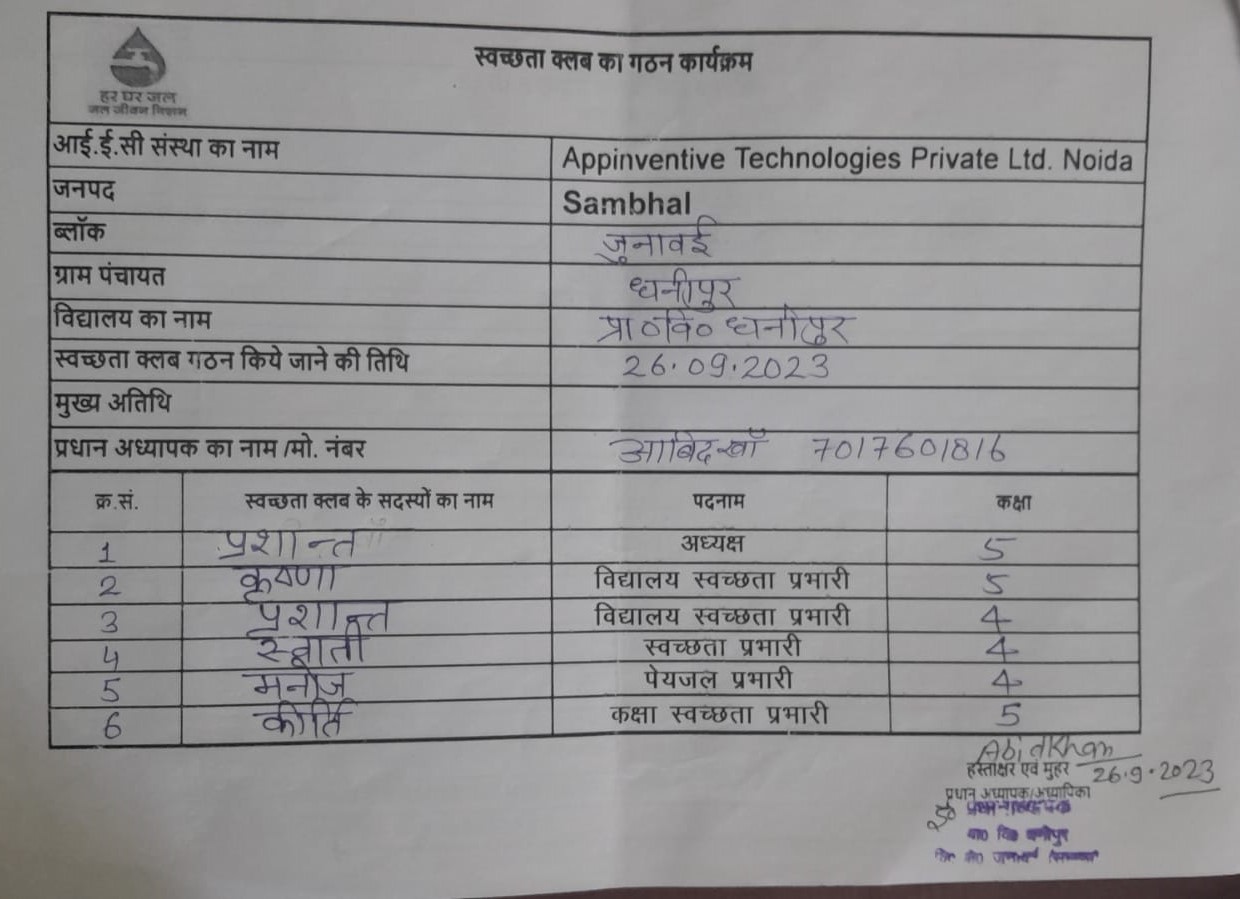 स्वच्छता क्लब का गठन कार्यक्रम
हर घर जल
जल जीवन मिशन
आई.ई.सी संस्था का नाम Appinventive Technologies Private Ltd. Noida
जनपद Sambhal
ब्लॉक जुनावई
ग्राम पंचायत धनीपुर
विद्यालय का नाम प्रा०वि० धनीपुर
स्वच्छता क्लब गठन किये जाने की तिथि 26.09.2023
मुख्य अतिथि
प्रधान अध्यापक का नाम /मो. नंबर आबिदखाँ 7017601816
क्र.सं. स्वच्छता क्लब के सदस्यों का नाम पदनाम कक्षा
1 प्रशान्त अध्यक्ष 5
2 कृष्णा विद्यालय स्वच्छता प्रभारी 5
3 प्रशान्त विद्यालय स्वच्छता प्रभारी 4
4 स्वाती स्वच्छता प्रभारी 4
5 मनोज पेयजल प्रभारी 4
6 कीर्ति कक्षा स्वच्छता प्रभारी 5
Abid Khan
हस्ताक्षर एवं मुहर 26.9.2023
प्रधान अध्यापक/अध्यापिका
इं० प्रधानाध्यापक
प्रा० वि० धनीपुर